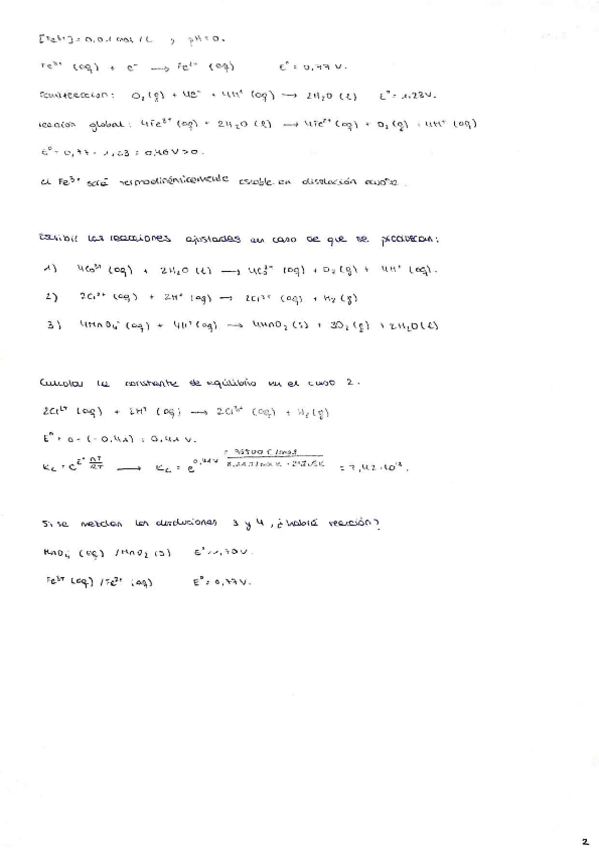 [Fe³⁺] = 0,01 mol/L , pH = 0.
Fe³⁺ (aq) + e⁻ → Fe²⁺ (aq) E° = 0,77 V.
O₂ (g) + 4e⁻ + 4H⁺ (aq) → 2H₂O (l) E° = 1,23V.
reacción global: 4Fe³⁺ (aq) + 2H₂O (l) → 4Fe²⁺ (aq) + O₂ (g) + 4H⁺ (aq)
E° = 0,77 - 1,23 = 0,46 V > 0.
El Fe³⁺ será termodinámicamente estable en disolución acuosa.
Escribir las reacciones ajustadas en caso de que se produzcan:
1) 4Co³⁺ (aq) + 2H₂O (l) → 4Co²⁺ (aq) + O₂ (g) + 4H⁺ (aq).
2) 2Cr²⁺ (aq) + 2H⁺ (aq) → 2Cr³⁺ (aq) + H₂ (g)
3) 4MnO₄⁻ (aq) + 4H⁺ (aq) → 4MnO₂ (s) + 3O₂ (g) + 2H₂O (l)
Calcular la constante de equilibrio en el caso 2.
2Cr²⁺ (aq) + 2H⁺ (aq) → 2Cr³⁺ (aq) + H₂ (g)
E° = 0 - (-0,41) = 0,41 V.
= 7,42·10
Si se mezclan las disoluciones 3 y 4, ¿habrá reacción?
MnO₄⁻ (aq) / MnO₂ (s) E° = 1,70 V.
Fe³⁺ (aq) / Fe²⁺ (aq) E° = 0,77 V.
2